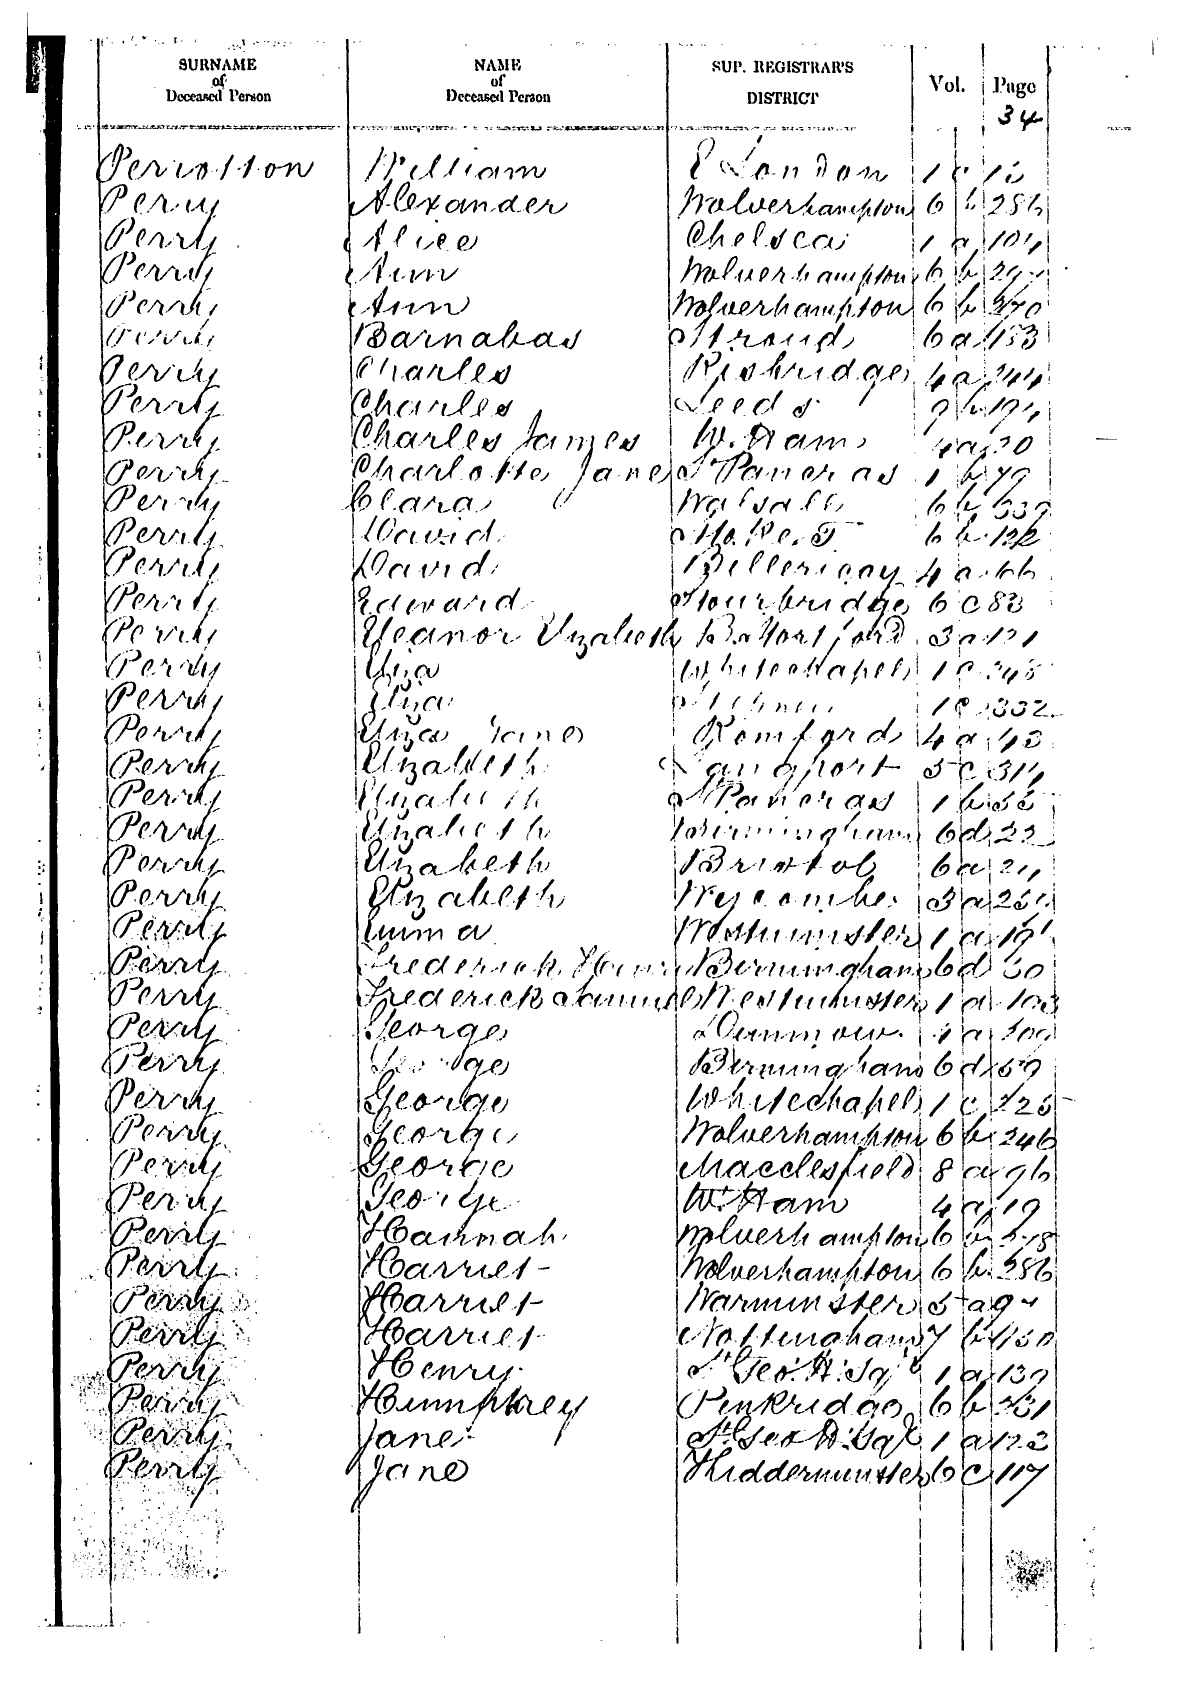 SURNAME of Deceased Person NAME of Deceased Person SUP. REGISTRAR'S DISTRICT Vol. Page
34
William E London 1 c
Perry Alexander Wolverhampton 6 b 286
Perry Alice Chelsea 1 a 104
Perry Ann Wolverhampton 6 b
Perry Ann Wolverhampton 6 b
Perry Barnabas Stroud 6 a 153
Perry Charles Risbridge 4 a 244
Perry Charles Leeds 9 b 194
Perry Charles James W. Ham 4 a
Perry Charlotte Jane St Pancras 1 b 79
Perry Clara Walsall 6 b 339
Perry David Stoke. T 6 b 122
Perry David Billericay 4 a 66
Perry Edward Stourbridge 6 c 83
Perry Eleanor Elizabeth 3 a 121
Perry Eliza Whitechapel 1 c 348
Perry Eliza 1 c 332
Perry Eliza Jane Romford 4 a 43
Perry Elizabeth Langport 5 c 314
Perry Elizabeth St Pancras 1 b
Perry Elizabeth Birmingham 6 d 22
Perry Elizabeth Bristol 6 a 24
Perry Elizabeth Wycombe 3 a
Perry Emma Westminster 1 a
Perry Frederick Henry Birmingham 6 d
Perry Frederick Samuel Westminster 1 a 103
Perry George Dunmow 4 a 309
Perry George Birmingham 6 d
Perry George Whitechapel 1 c
Perry George Wolverhampton 6 b 246
Perry George Macclesfield 8 a 96
Perry George W. Ham 4 a 19
Perry Hannah Wolverhampton 6 b
Perry Harriet Wolverhampton 6 b 286
Perry Harriet Warminster 5 a
Perry Harriet Nottingham 7 b
Perry Henry St Geo. H. Sq 1 a 139
Perry Humphrey Penkridge 6 b 331
Perry Jane St Geo H. Sq 1 a 122
Perry Jane Kidderminster 6 c 117